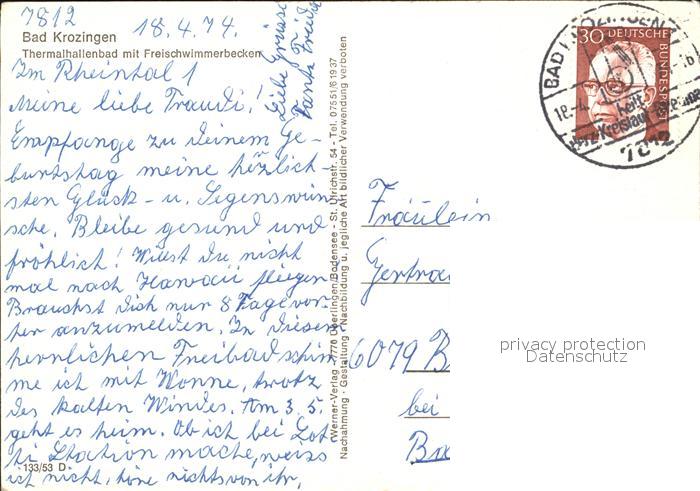 7812
18.4.74.
Bad Krozingen
Thermalhallenbad mit Freischwimmerbecken
Im Rheintal 1
Meine liebe Traudi!
Empfange zu Deinem Ge-
burtstag meine herzlich-
sten Glück- u. Segenswün-
sche. Bleibe gesund und
fröhlich! Willst Du nicht
mal nach Hawaii fliegen
Brauchst Dich nur 8 Tage vor-
her anzumelden. In diesem
herrlichen Freibad schwim
me ich mit Wonne, trotz
des kalten Windes. Am 3.5.
geht es heim. Ob ich bei Lot
ti Station mache, weiss
ich nicht, höre nichts von ihr,
133/53 D
Liebe Grüsse
Tante Friedel
Werner-Verlag · 7770 Überlingen/Bodensee - St. Ulrichstr. 54 - Tel. 07551/61937
Nachahmung - Gestaltung - Nachbildung u. jegliche Art bildlicher Verwendung verboten
30 DEUTSCHE BUNDESPOST
BAD KROZINGEN 1
18.-4.
heilt
Herz-Kreislauf
7812
Fräulein
Gertrau
6079 B
bei
Bu
privacy protection
Datenschutz